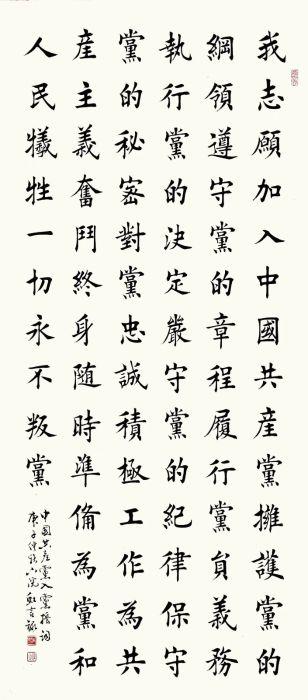 我志願加入中國共産黨擁護黨的
綱領遵守黨的章程履行黨員義務
執行黨的決定嚴守黨的紀律保守
黨的秘密對黨忠誠積極工作為共
産主義奮鬥終身随時準備為黨和
人民犧牲一切永不叛黨
中國共産黨入黨誓詞
庚子